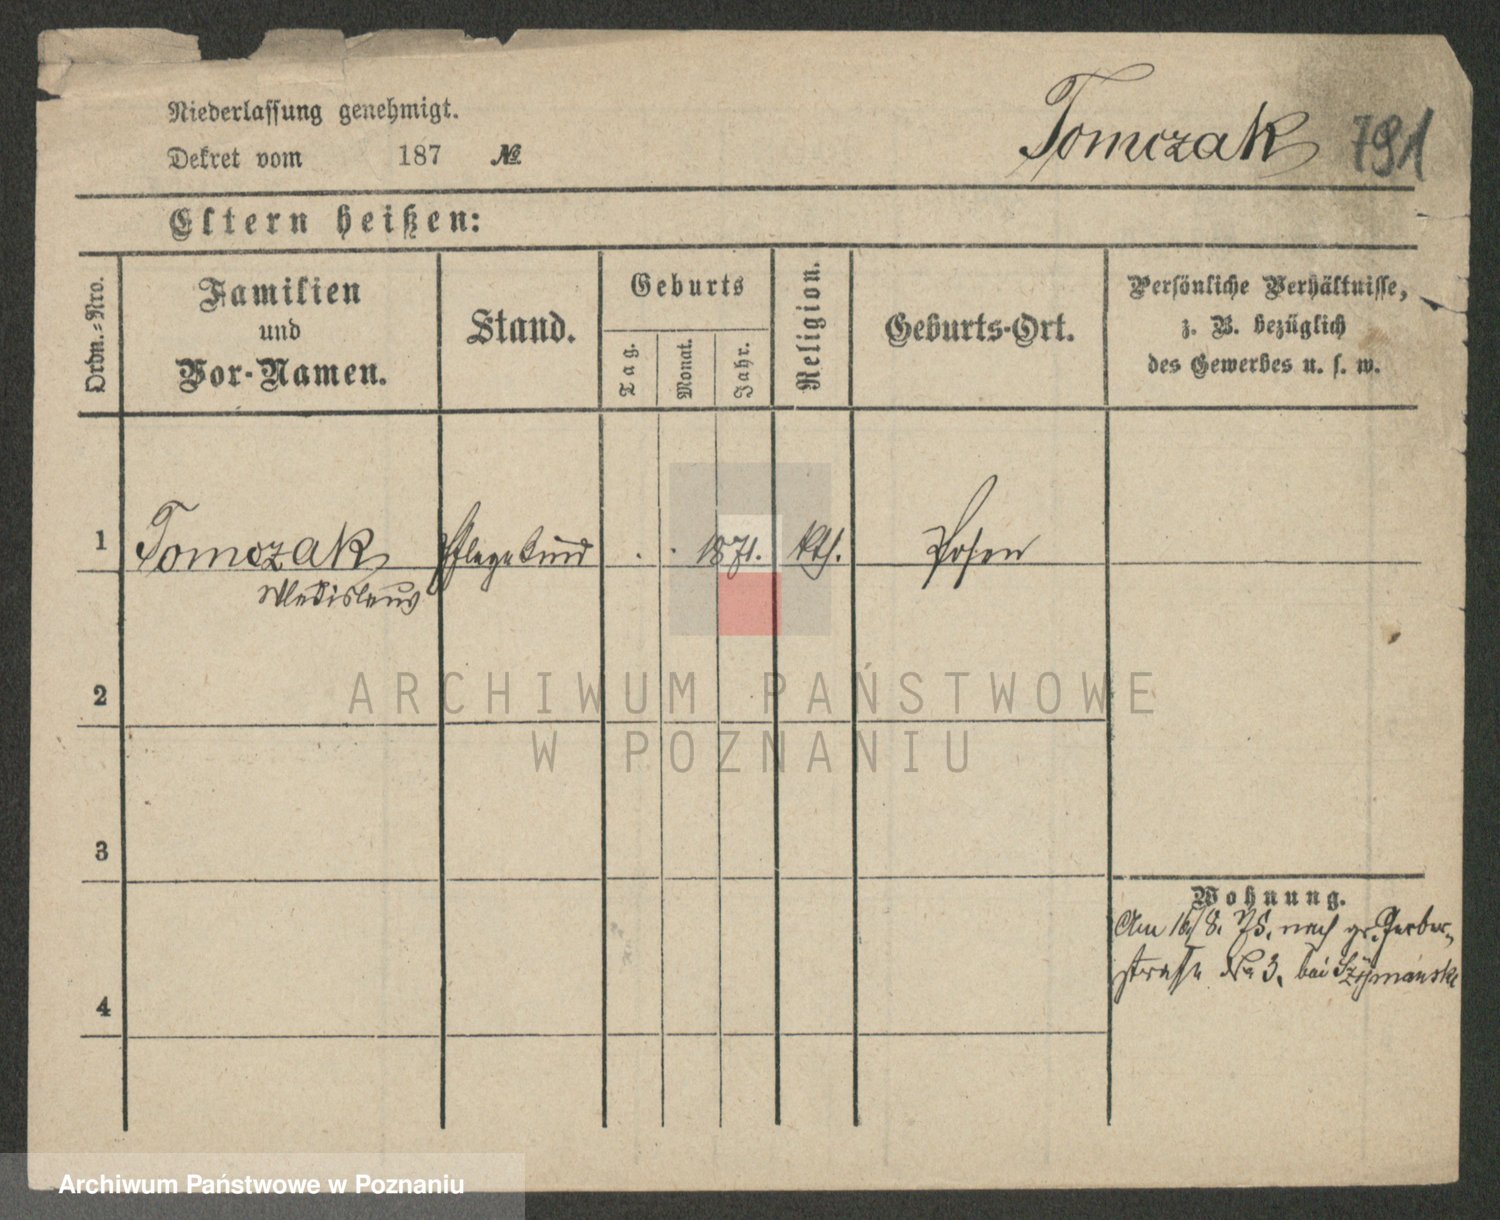 Niederlassung genehmigt.
Dekret vom 187 №
Tomczak 791
Eltern heißen:
Ordn.-Nro.
Familien
und
Vor-Namen.
Stand.
Geburts
Tag.
Monat.
Jahr.
Religion.
Geburts-Ort.
Persönliche Verhältnisse,
z. B. bezüglich
des Gewerbes u. s. w.
1 Tomczak Pflegekind . . 1871. kth. Posen
Wladislaus
2
3
4
Wohnung.
Am 16/8. 75. nach gr. Gerber-
straße No 3, bei Szymanski
ARCHIWUM PAŃSTWOWE
W POZNANIU
Archiwum Państwowe w Poznaniu